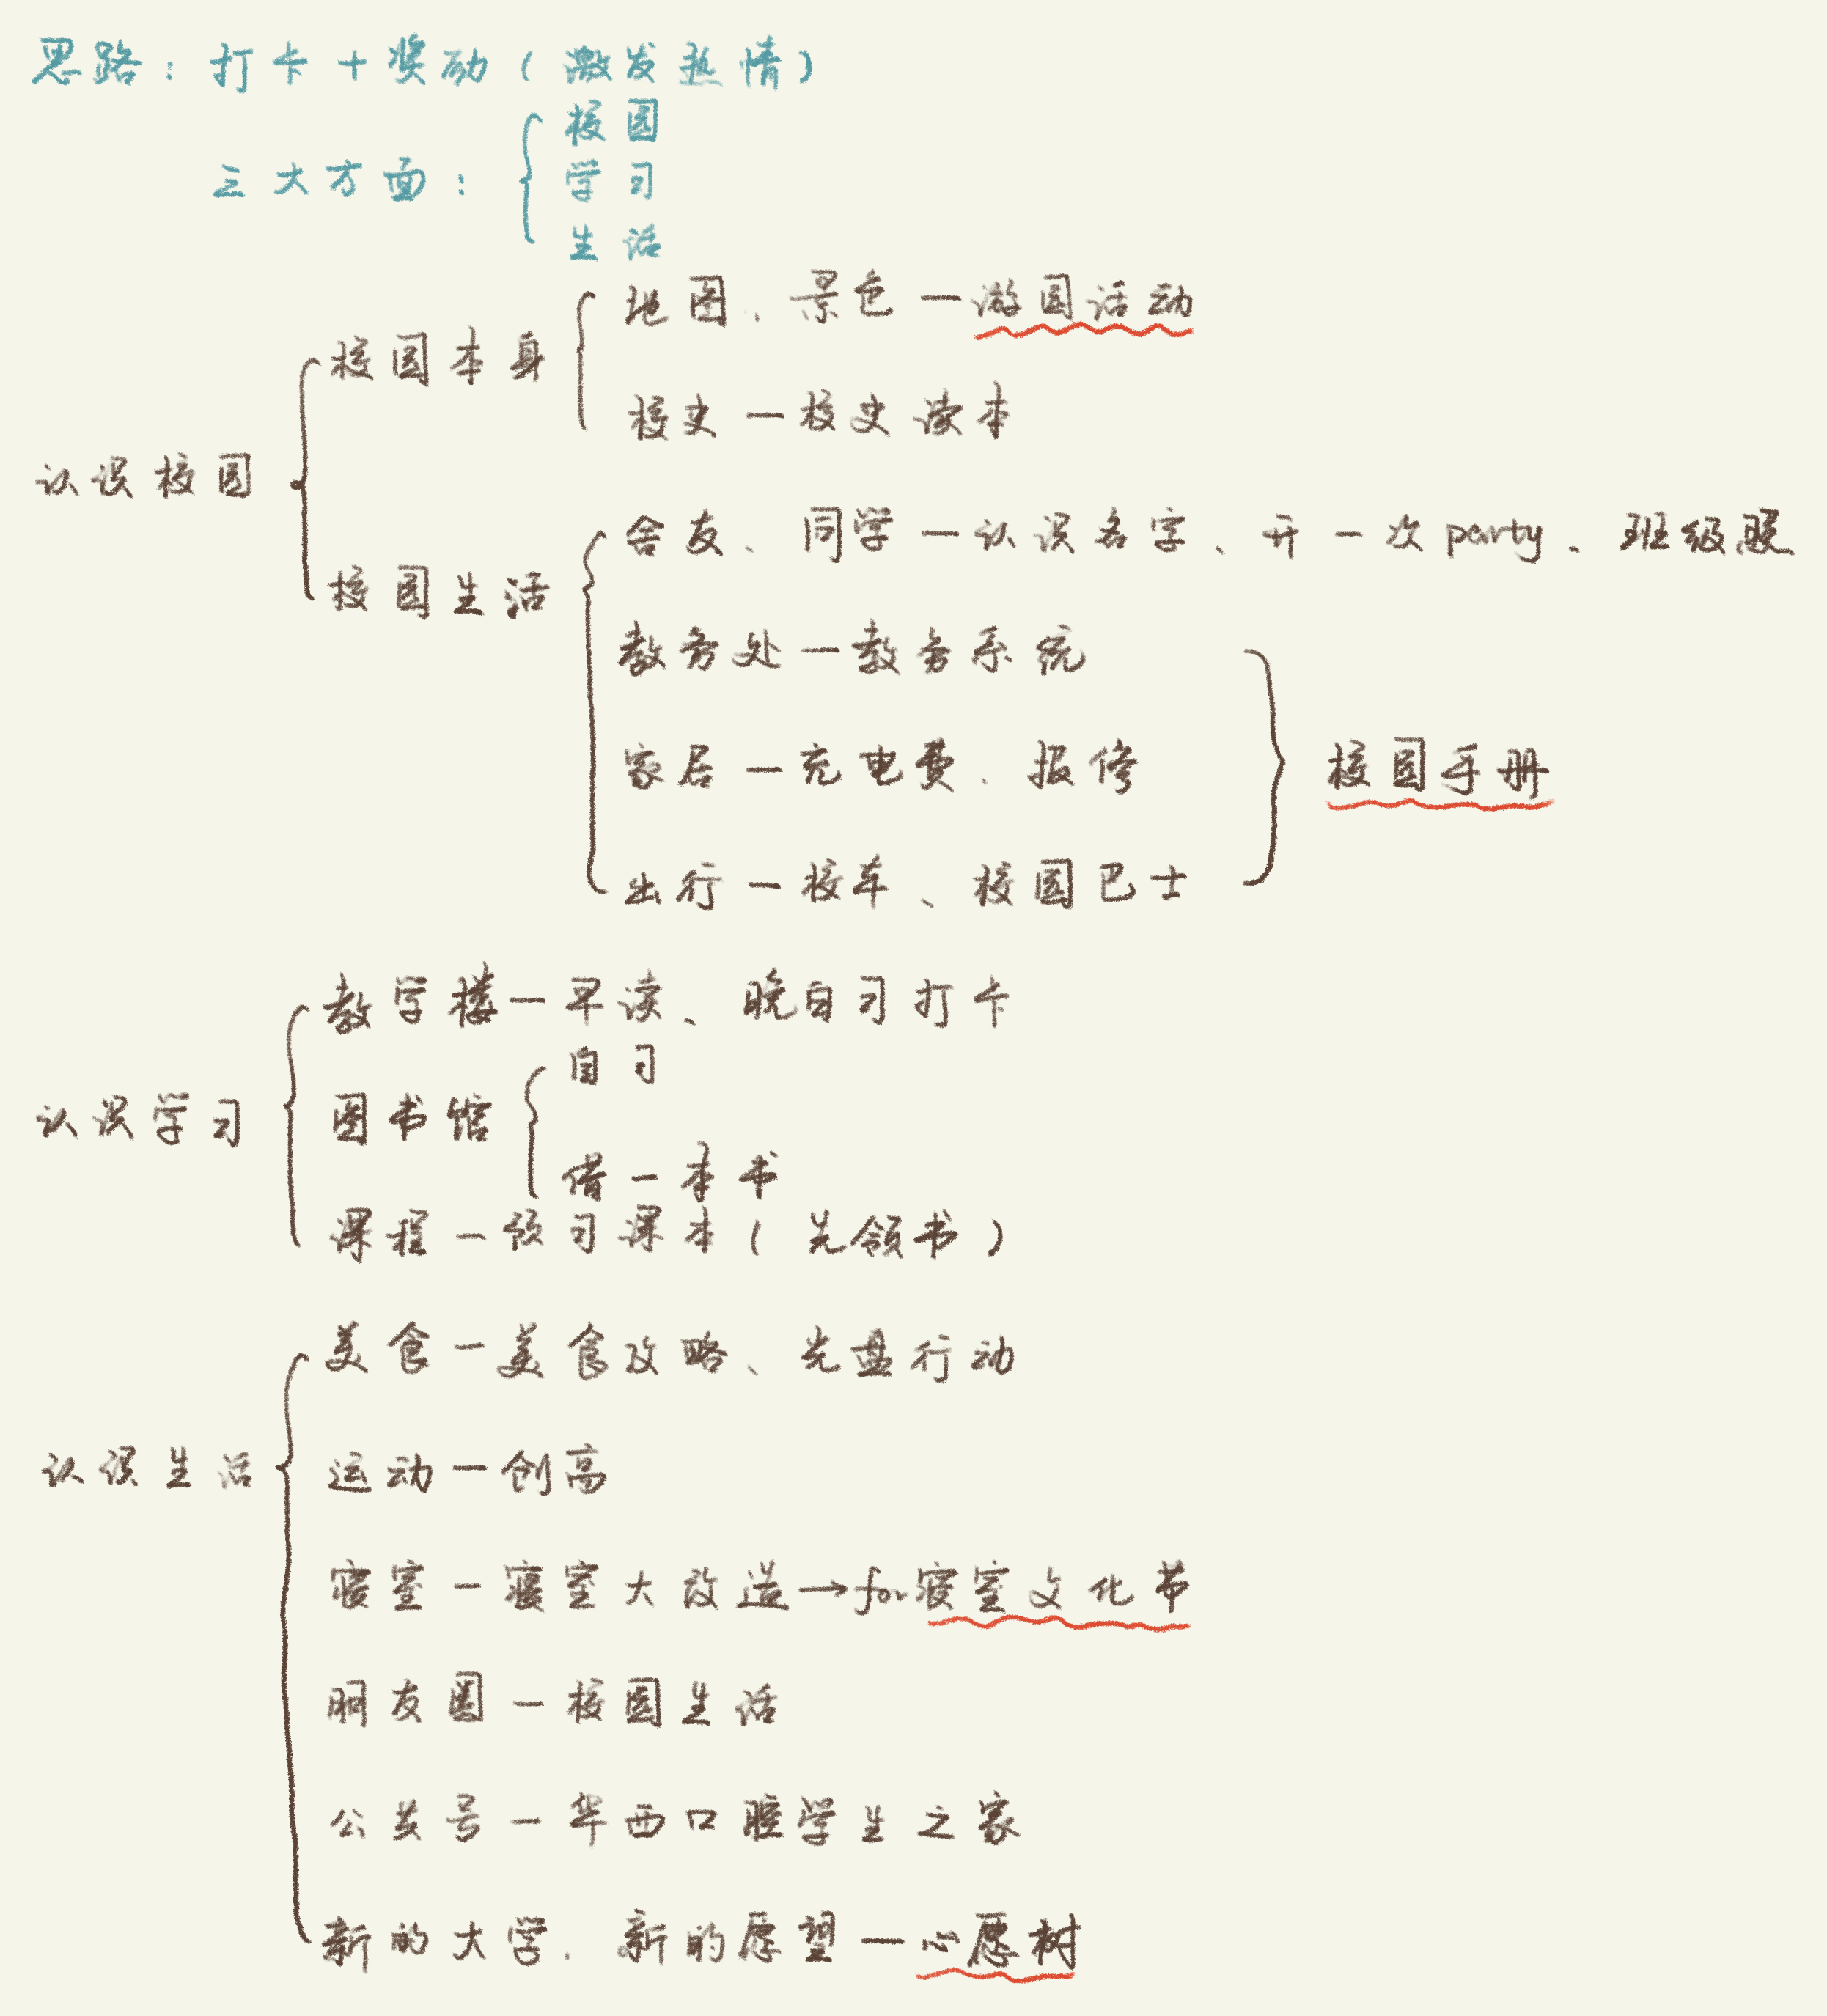 思路：打卡＋奖励（激发热情）
三大方面：
校园
学习
生活
认识校园
校园本身
地图、景色—游园活动
校史—校史读本
校园生活
舍友、同学—认识名字、开一次party、班级照
教务处—教务系统
家居—充电费、报修
出行—校车、校园巴士
校园手册
认识学习
教学楼—早读、晚自习打卡
图书馆
自习
借一本书
课程—预习课本（先领书）
认识生活
美食—美食攻略、光盘行动
运动—创高
寝室—寝室大改造→for寝室文化节
朋友圈—校园生活
公共号—华西口腔学生之家
新的大学、新的愿望—心愿树